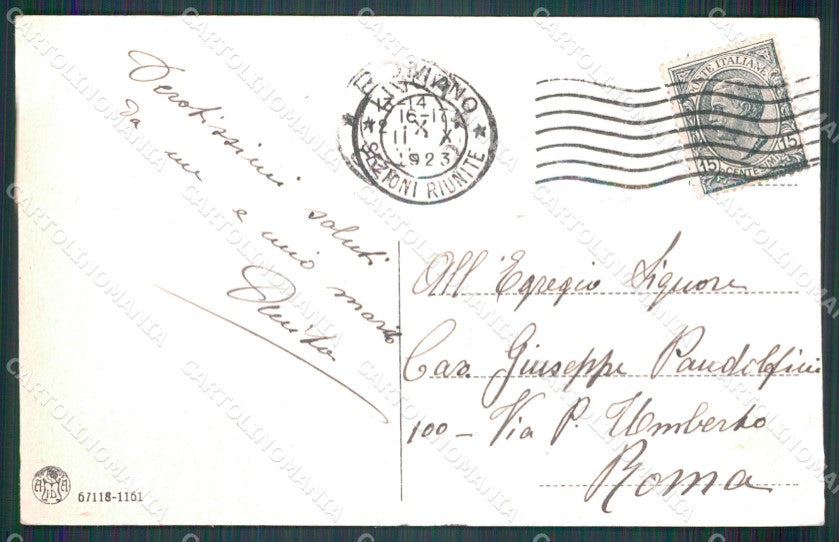 Devotissimi saluti
da me e mio marito
MILANO
13-14
16-17
X
1923
SEZIONI RIUNITE
POSTE ITALIANE
15 CENT. 15
All' Egregio Signore
Cav. Giuseppe Pandolfini
100 - Via P. Umberto
Roma
67118-1161
CARTOLINOMANIA